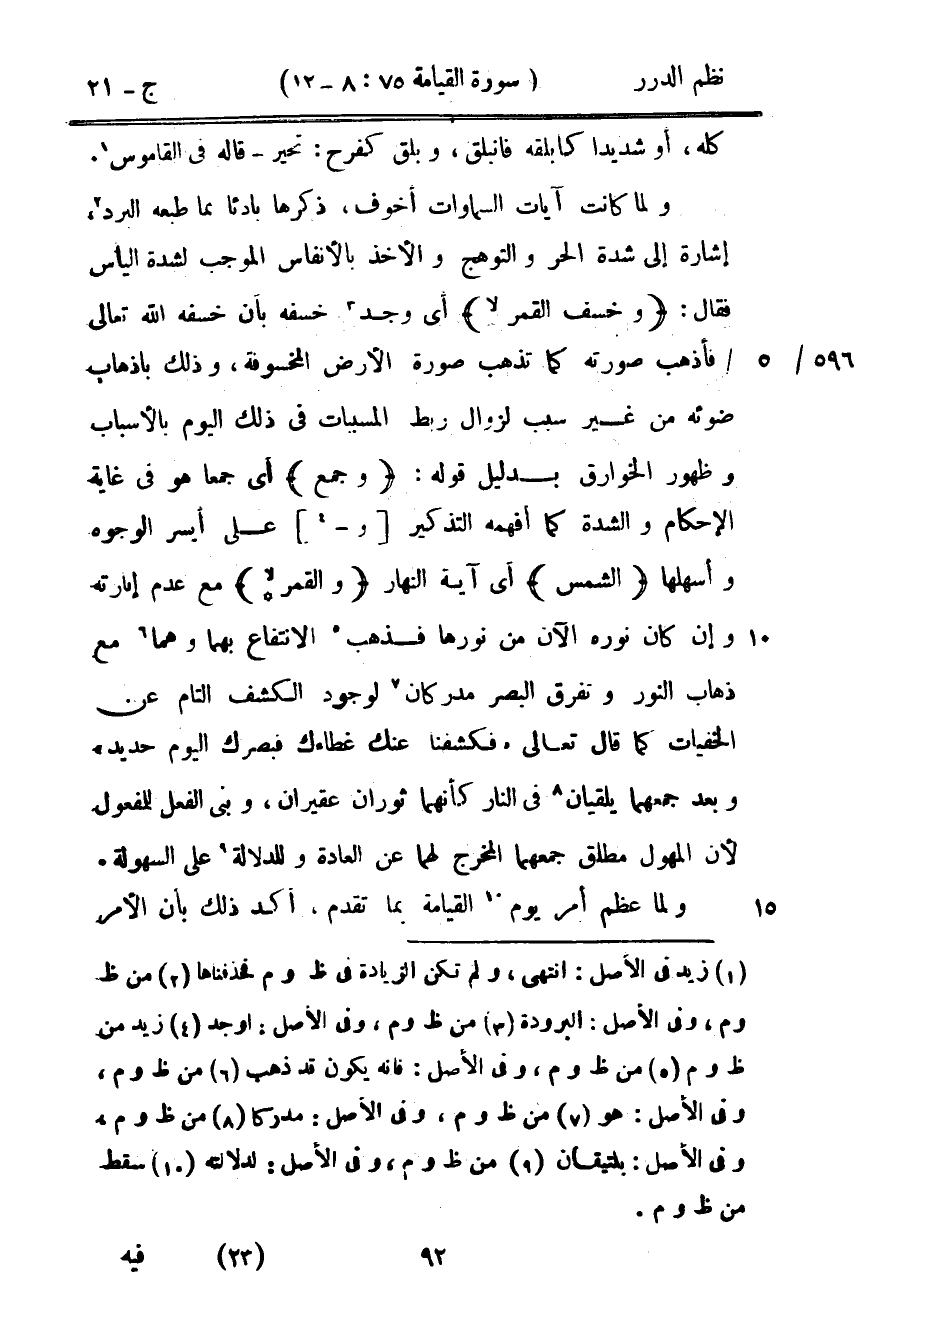 نظم الدرر ( سورة القيامة ٧٥ : ٨ – ١٢) ج – ٢١
كله، أو شديدا كابلقه فانبلق، و بلق كفرح: تحير – قاله فى القاموس١.
و لما كانت آيات السماوات أخوف، ذكرها بادئا بما طبعه البرد٢،
إشارة إلى شدة الحر و التوهج و الأخذ بالأنفاس الموجب لشدة اليأس
فقال: ﴿ و خسف القمر لا ﴾ أى وجد٣ خسفه بأن خسفه الله تعالى
٥٩٦ / ٥ / فأذهب صورته كما تذهب صورة الأرض المخسوفة، و ذلك باذهاب
ضوئه من غير سبب لزوال ربط المسببات فى ذلك اليوم بالأسباب
و ظهور الخوارق بدليل قوله: ﴿ و جمع ﴾ أى جمعا هو فى غاية
الإحكام و الشدة كما أفهمه التذكير [ و – ٤ ] على أيسر الوجوه
و أسهلها ﴿ الشمس ﴾ أى آية النهار ﴿ و القمر لا ﴾ مع عدم إنارته
١٠ و إن كان نوره الآن من نورها فذهب٥ الانتفاع بهما و هما٦ مع
ذهاب النور و تفرق البصر مدركان٧ لوجود الكشف التام عن
الخفيات كما قال تعالى «فكشفنا عنك غطاءك فبصرك اليوم حديد»
و بعد جمعهما يلقيان٨ فى النار كأنهما ثوران عقيران، و بنى الفعل للمفعول
لأن المهول مطلق جمعهما المخرج لهما عن العادة و للدلالة٩ على السهولة.
١٥ و لما عظم أمر يوم١٠ القيامة بما تقدم، أكد ذلك بأن الأمر
(١) زيد فى الأصل: انتهى، و لم تكن الزيادة فى ظ و م فحذفناها (٢) من ظ
و م، و فى الأصل: البرودة (٣) من ظ و م، و فى الأصل: اوجد (٤) زيد من
ظ و م (٥) من ظ و م، و فى الأصل: فانه يكون قد ذهب (٦) من ظ و م،
و فى الأصل: هو (٧) من ظ و م، و فى الأصل: مدركا (٨) من ظ و م،
و فى الأصل: يلتيقان (٩) من ظ و م، و فى الأصل: لدلالته (١٠) سقط
من ظ و م.
٩٢ (٢٣) فيه